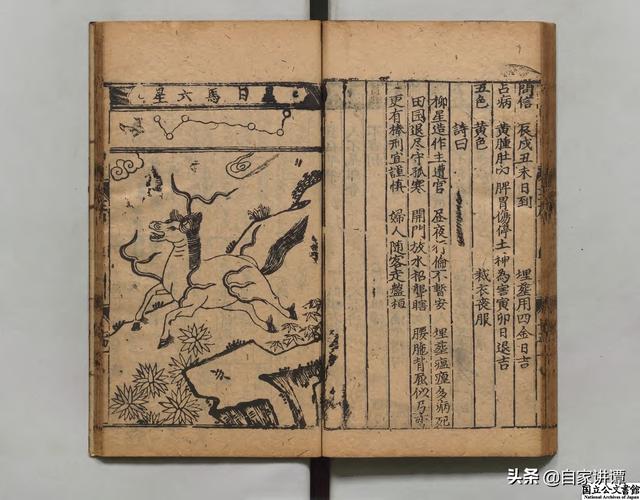 問信 辰戌丑未日到 埋葬用四金日吉
占病 黄腫肚 脾胃傷停土神為害寅卯日退吉
五色 黄色 裁衣喪服
詩曰
柳星造作主遭官 昼夜行偷不暫安 埋葬瘟多病死
田园退尽守孤寒 開門放水招聾瞎 腰駝背屈似弓
更有棒刑宜謹慎 婦人随客走盤桓
日馬六星
头条 @自家讲谭
国立公文書館
National Archives of Japan